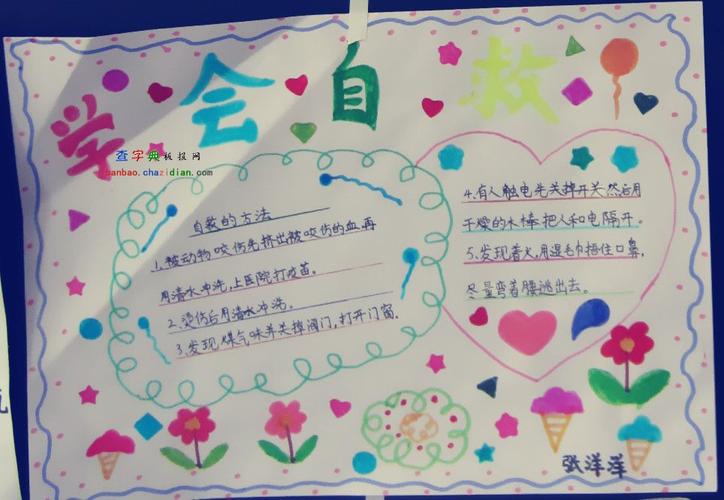 学会自救
查字典板报网
banbao.chazidian.com
自救的方法
1.被动物咬伤先挤出被咬伤的血,再
用清水冲洗,上医院打疫苗。
2.烫伤后用清水冲洗。
3.发现煤气味并关掉阀门,打开门窗。
4.有人触电先关掉开关然后用
干燥的木棒把人和电隔开。
5.发现着火,用湿毛巾捂住口鼻,
尽量弯着腰逃出去。
张洋洋